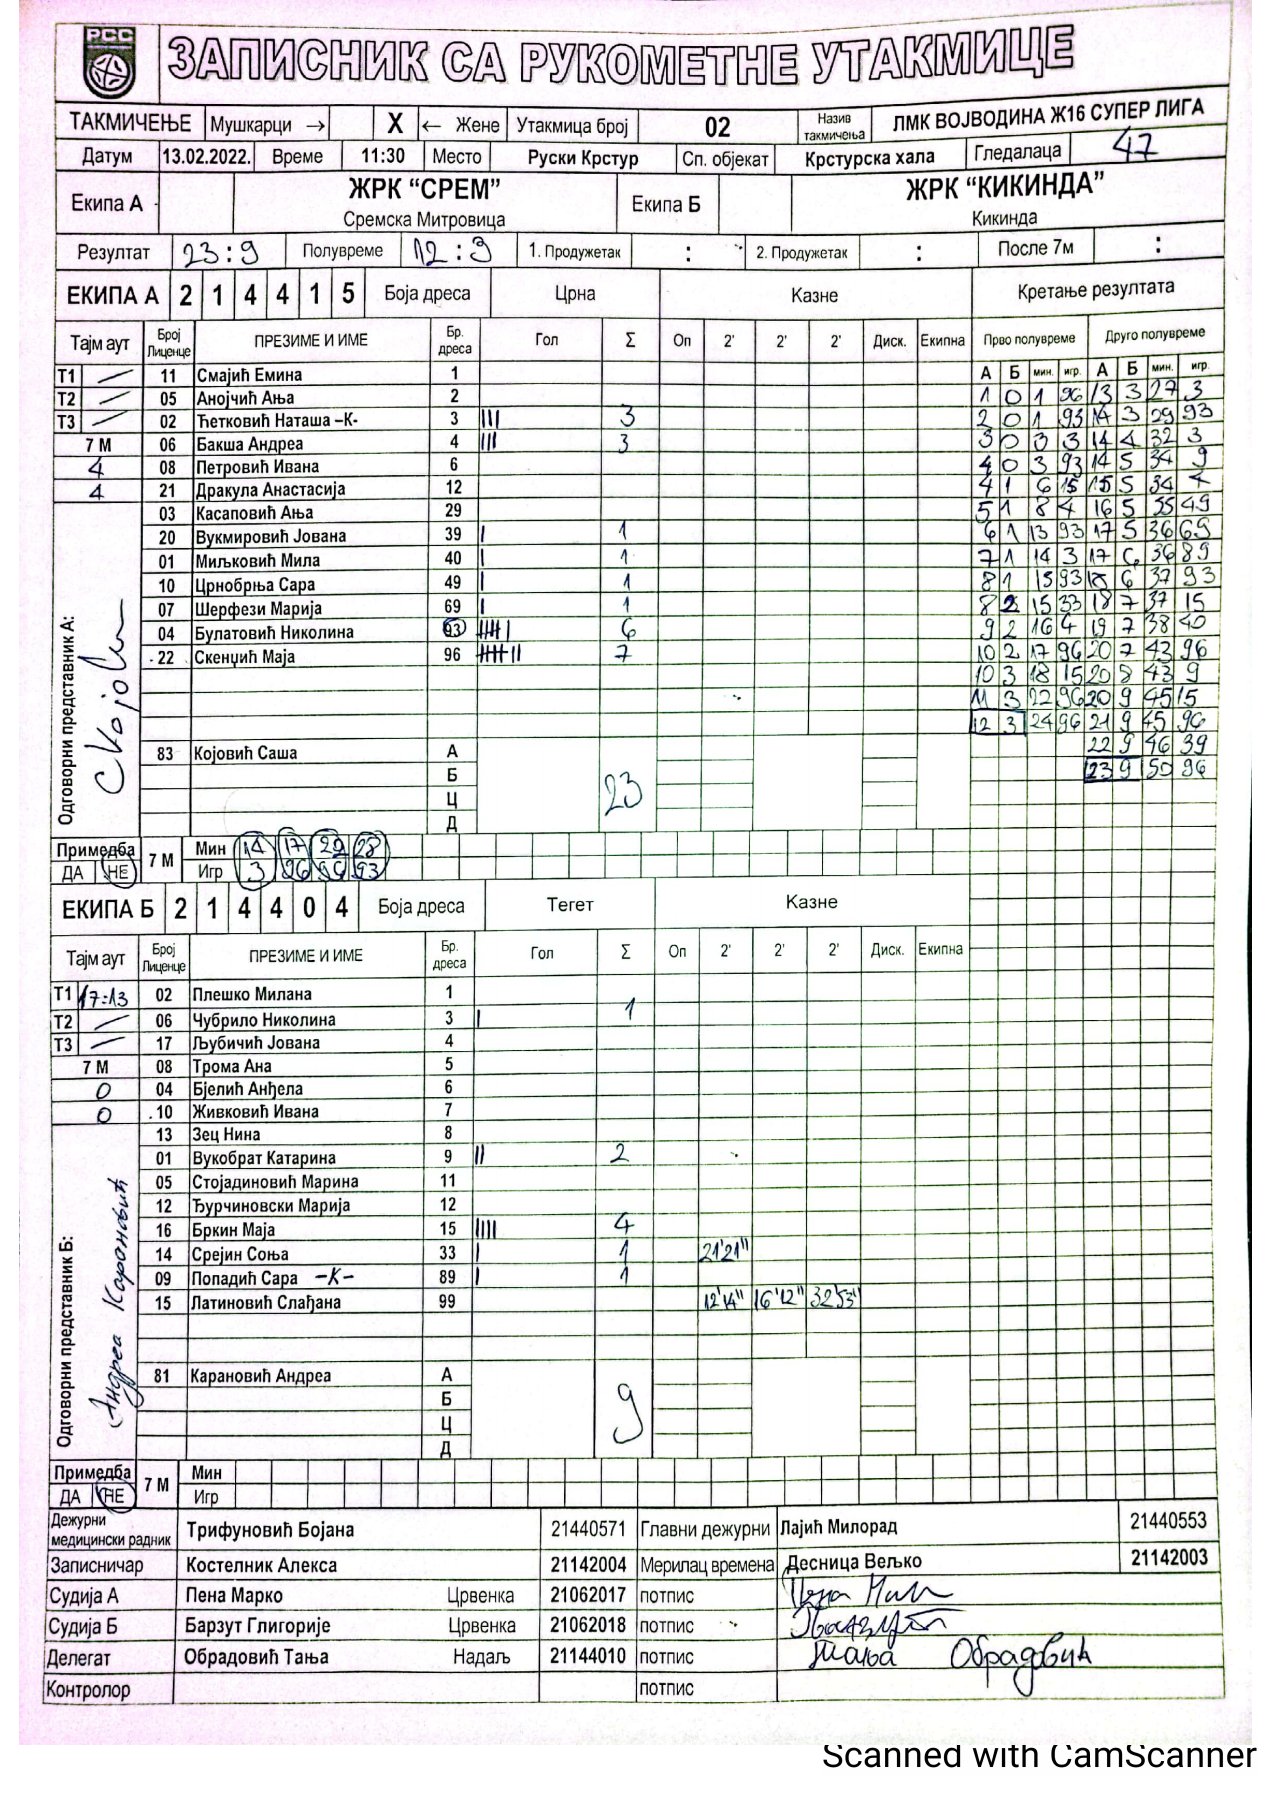 РСС
ЗАПИСНИК СА РУКОМЕТНЕ УТАКМИЦЕ
ТАКМИЧЕЊЕ Мушкарци → X ← Жене Утакмица број 02 Назив такмичења ЛМК ВОЈВОДИНА Ж16 СУПЕР ЛИГА
Датум 13.02.2022. Време 11:30 Место Руски Крстур Сп. објекат Крстурска хала Гледалаца 47
Екипа А ЖРК “СРЕМ” Екипа Б ЖРК “КИКИНДА”
Сремска Митровица Кикинда
Резултат 23:9 Полувреме 12:3 1. Продужетак : 2. Продужетак : После 7м :
ЕКИПА А 2 1 4 4 1 5 Боја дреса Црна Казне Кретање резултата
Тајм аут Број Лиценце ПРЕЗИМЕ И ИМЕ Бр. дреса Гол Σ Оп 2' 2' 2' Диск. Екипна Прво полувреме Друго полувреме
А Б мин. игр. А Б мин. игр.
Т1 — 11 Смајић Емина 1
Т2 — 05 Анојчић Ања 2 1 0 1 96 13 3 27 3
Т3 — 02 Ћетковић Наташа –К- 3 III 3 2 0 1 93 14 3 29 93
7 М 06 Бакша Андреа 4 III 3 3 0 3 3 14 4 32 3
4 08 Петровић Ивана 6 4 0 3 93 14 5 34 9
4 21 Дракула Анастасија 12 4 1 6 15 15 5 34 4
03 Касаповић Ања 29 5 1 8 4 16 5 35 49
20 Вукмировић Јована 39 I 1 6 1 13 93 17 5 36 69
01 Миљковић Мила 40 I 1 7 1 14 3 17 6 36 89
10 Црнобрња Сара 49 I 1 8 1 15 93 18 6 37 93
07 Шерфези Марија 69 I 1 8 2 15 33 18 7 37 15
04 Булатовић Николина 93 IIIII I 6 9 2 16 4 19 7 38 40
22 Скенџић Маја 96 IIIII II 7 10 2 17 96 20 7 43 96
10 3 18 15 20 8 43 9
11 3 22 96 20 9 45 15
12 3 24 96 21 9 45 96
83 Којовић Саша А 22 9 46 39
Б 23 9 50 96
Ц 23
Д
Одговорни представник А:
Примедба 7 М Мин 14 17 22 28
ДА НЕ Игр 3 96 96 93
ЕКИПА Б 2 1 4 4 0 4 Боја дреса Тегет Казне
Тајм аут Број Лиценце ПРЕЗИМЕ И ИМЕ Бр. дреса Гол Σ Оп 2' 2' 2' Диск. Екипна
Т1 17:13 02 Плешко Милана 1
Т2 — 06 Чубрило Николина 3 I 1
Т3 — 17 Љубичић Јована 4
7 М 08 Трома Ана 5
0 04 Бјелић Анђела 6
0 10 Живковић Ивана 7
13 Зец Нина 8
01 Вукобрат Катарина 9 II 2
05 Стојадиновић Марина 11
12 Ђурчиновски Марија 12
16 Бркин Маја 15 IIII 4
14 Срејин Соња 33 I 1 21'21"
09 Попадић Сара –К- 89 I 1
15 Латиновић Слађана 99 12'14" 16'12" 32'53"
81 Карановић Андреа А
Б
Ц 9
Д
Одговорни представник Б: Андреа Карановић
Примедба 7 М Мин
ДА НЕ Игр
Дежурни медицински радник Трифуновић Бојана 21440571 Главни дежурни Лајић Милорад 21440553
Записничар Костелник Алекса 21142004 Мерилац времена Десница Вељко 21142003
Судија А Пена Марко Црвенка 21062017 потпис
Судија Б Барзут Глигорије Црвенка 21062018 потпис
Делегат Обрадовић Тања Надаљ 21144010 потпис Тања Обрадовић
Контролор потпис
Scanned with CamScanner